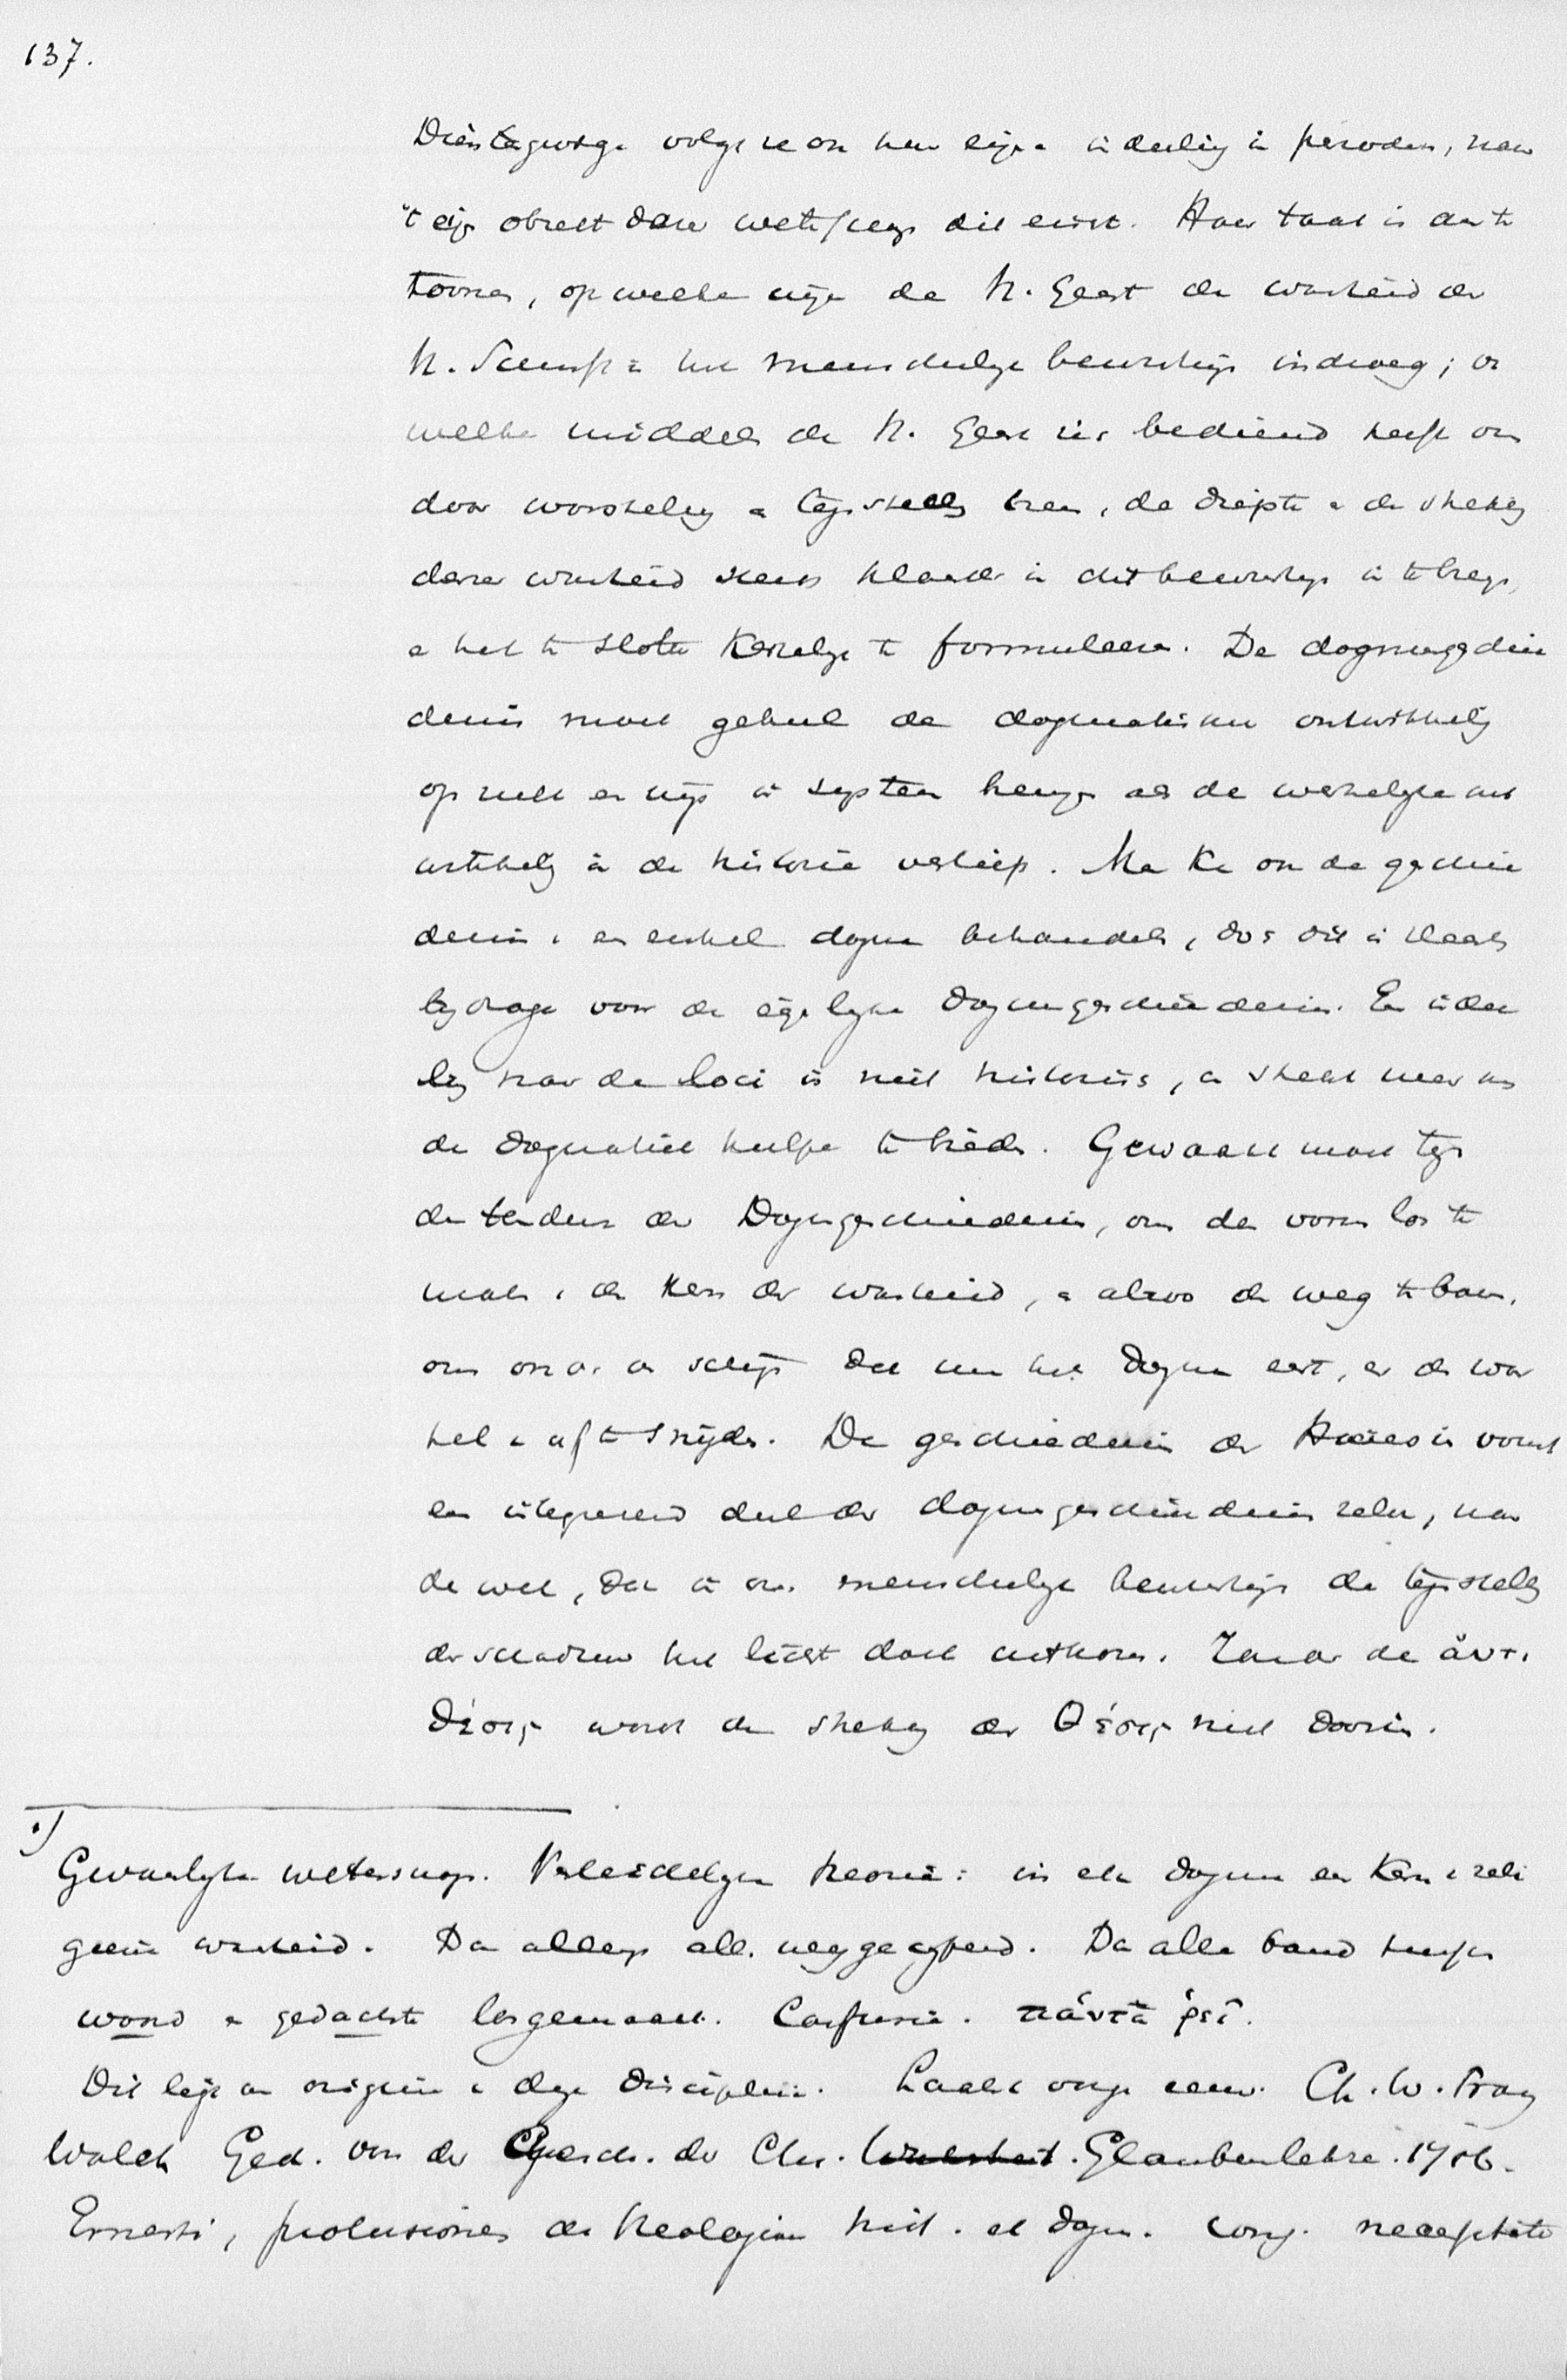 137.
Dientengevolge volge ze een eigen indeeling in perioden, naar
't eig. object dezer wetenschap dit eischt. Haar taak is aan te
toonen, op welke wijze de H. Geest de waarheid der
H. Schrift in het menschelijke bewustzijn indroeg; en
welke middelen de H. Geest zich bediend heeft om
door worsteling en tegenstelling heen, de diepte en de strekking
dezer waarheid steeds klaarder in dit bewustzijn in te brengen,
en het ten slotte Kerkelijk te formuleeren. De dogmengeschie
denis moet geheel de dogmatische ontwikkeling
op zulk een wijs in system brengen als de werkelijke
ontwikkeling in de historie verliep. Men kan de geschie
denis van een enkel dogma behandelen, doch dit is slechts
bijdrage voor de eigenlijke Dogmengeschiedenis. En indee
ling naar de loci is niet historisch, en strekt meer om
de Dogmatiek hulpe te bieden. Gewaakt moet tegen
de tendenz der Dogmengeschiedenis, om den vorm los te
maken van de kern der waarheid, en alzoo den weg te banen,
om onder den schijn dat men het Dogma eert, er den wor
tel van af te snijden. De geschiedenis der Haeresie vormt
een integreerend deel der dogmengeschiedenis zelve, naar
de wet, dat in ons menschelijk bewustzijn de tegenstelling
der schaduw het licht doet uitkomen. Zonder de ἀντι
θέσις wordt de strekking der θέσις niet doorzien.
1)
Gevaarlijke wetenschap. Verleidelijke theorie: in elk dogma een Kern van reli
gieuse waarheid. Dan alleen all. weggecijferd. Dan alle band tusschen
woord en gedachte losgemaakt. Confusie. πάντα ῥεῖ.
Dit ligt in origine van deze discipline. Laatst vorige eeuw. Ch. W. Franz
Walch Ged. von der Gesch. der Chr. Glaubenlehre. 1756.
Ernesti, prolusiones de theologiae hist. et dogm. conj. necessitate